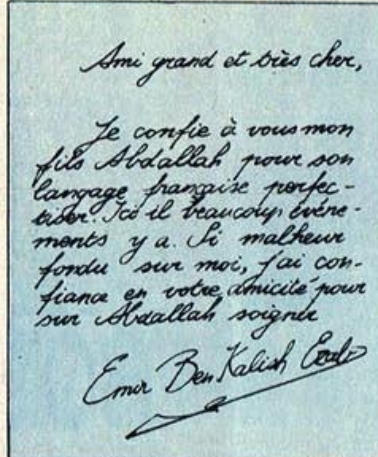 Ami grand et très cher,
Je confie à vous mon
fils Abdallah pour son
langage française perfec-
tiser. Ici il beaucoup événe-
ments y a. Si malheur
fondu sur moi, j'ai con-
fiance en votre amicité pour
sur Abdallah soigner
Emir Ben Kalish Ezab